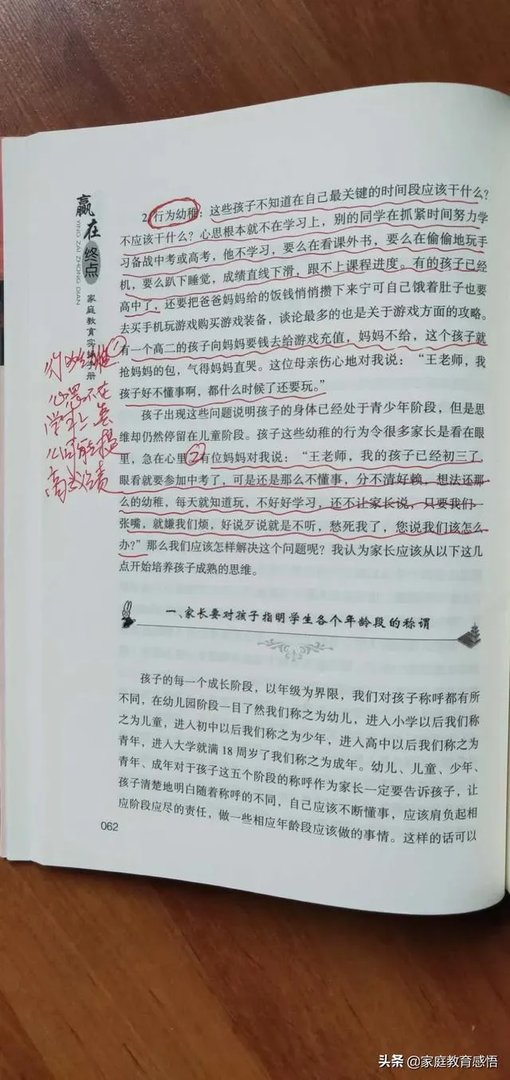 赢在终点
YING ZAI ZHONG DIAN
家庭教育实
册
2.行为幼稚：这些孩子不知道在自己最关键的时间段应该干什么？
不应该干什么？心思根本就不在学习上，别的同学在抓紧时间努力学
习备战中考或高考，他不学习，要么在看课外书，要么在偷偷地玩手
机，要么趴下睡觉，成绩直线下滑，跟不上课程进度。有的孩子已经
高中了，还要把爸爸妈妈给的饭钱悄悄攒下来宁可自己饿着肚子也要
去买手机玩游戏购买游戏装备，谈论最多的也是关于游戏方面的攻略。
有一个高二的孩子向妈妈要钱去给游戏充值，妈妈不给，这个孩子就
抢妈妈的包，气得妈妈直哭。这位母亲伤心地对我说：“王老师，我
孩子好不懂事啊，都什么时候了还要玩。”
孩子出现这些问题说明孩子的身体已经处于青少年阶段，但是思
维却仍然停留在儿童阶段。孩子这些幼稚的行为令很多家长是看在眼
里，急在心里②有位妈妈对我说：“王老师，我的孩子已经初三了，
眼看就要参加中考了，可是还是那么不懂事，分不清好赖，想法还那
么的幼稚，每天就知道玩，不好好学习，还不让家长说，只要我们一
张嘴，就嫌我们烦，好说歹说就是不听，愁死我了，您说我们该怎么
办？”那么我们应该怎样解决这个问题呢？我认为家长应该从以下这几
点开始培养孩子成熟的思维。
①
心思不在
学习上 怎
高成绩
一、家长要对孩子指明学生各个年龄段的称谓
孩子的每一个成长阶段，以年级为界限，我们对孩子称呼都有所
不同，在幼儿园阶段一目了然我们称之为幼儿，进入小学以后我们称
之为儿童，进入初中以后我们称之为少年，进入高中以后我们称之为
青年，进入大学就满 18 周岁了我们称之为成年。幼儿、儿童、少年、
青年、成年对于孩子这五个阶段的称呼作为家长一定要告诉孩子，让
孩子清楚地明白随着称呼的不同，自己应该不断懂事，应该肩负起相
应阶段应尽的责任，做一些相应年龄段应该做的事情。这样的话可以
062
头条 @家庭教育感悟